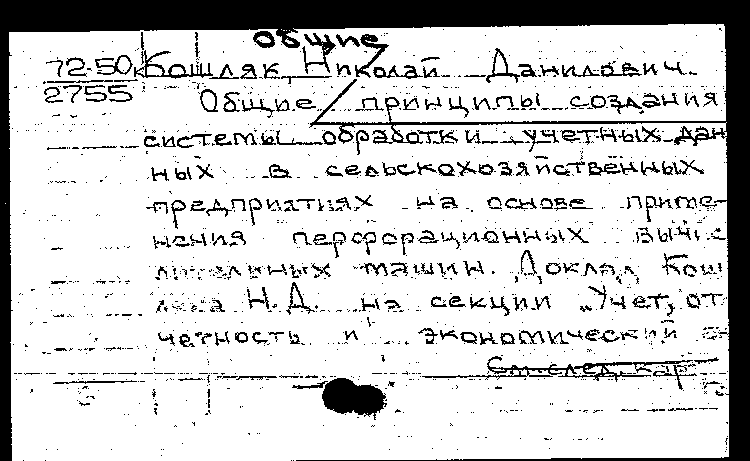 Общие
72-50 Кошляк, Николай Данилович.
2755 Общие принципы создания
системы обработки учетных дан
ных в сельскохозяйственных
предприятиях на основе приме-
нения перфорационных вычис
лительных машин. Доклад Кош
ляка Н.Д. на секции „Учет, от
четность и экономический
См. след. кар